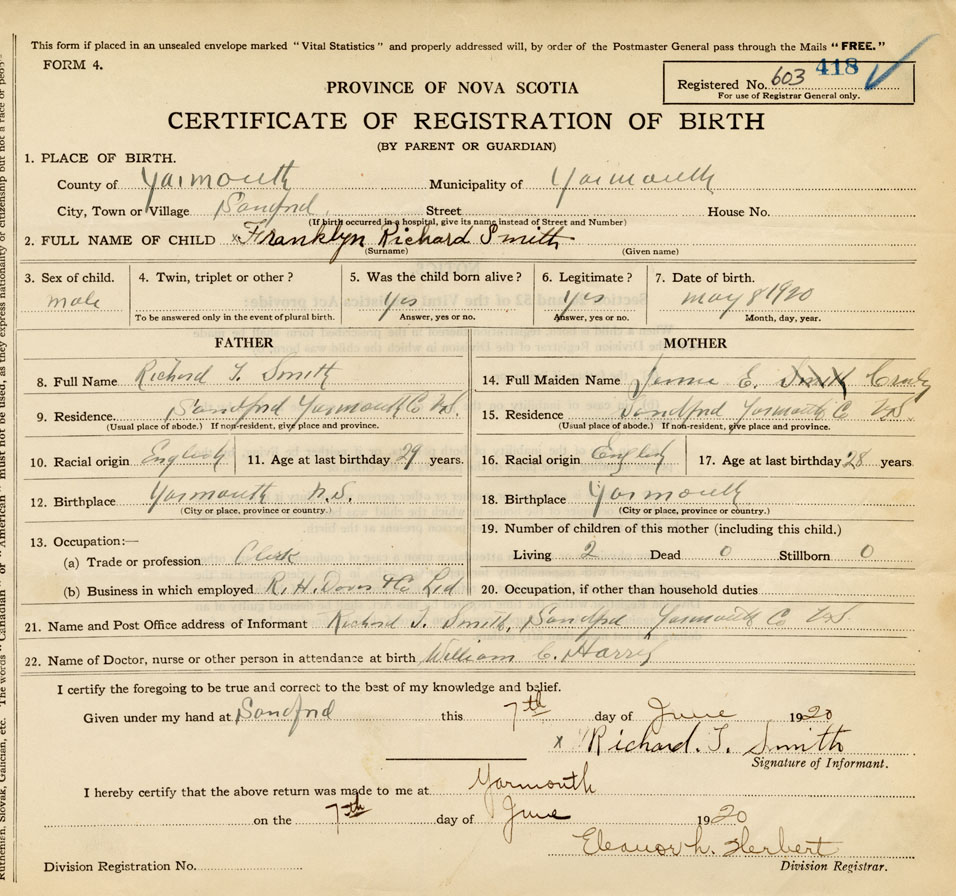 This form if placed in an unsealed envelope marked "Vital Statistics" and properly addressed will, by order of the Postmaster General pass through the Mails "FREE."
FORM 4.
Registered No. 603 418
For use of Registrar General only.
PROVINCE OF NOVA SCOTIA
CERTIFICATE OF REGISTRATION OF BIRTH
(BY PARENT OR GUARDIAN)
1. PLACE OF BIRTH.
County of Yarmouth Municipality of Yarmouth
City, Town or Village Sandford Street House No.
(If birth occurred in a hospital, give its name instead of Street and Number)
2. FULL NAME OF CHILD x Franklyn Richard Smith
(Surname) (Given name)
3. Sex of child. 4. Twin, triplet or other? 5. Was the child born alive? 6. Legitimate? 7. Date of birth.
male Yes Yes May 8 1920
To be answered only in the event of plural birth. Answer, yes or no. Answer, yes or no. Month, day, year.
FATHER MOTHER
8. Full Name Richard T. Smith 14. Full Maiden Name Jennie E. Smith Crosby
9. Residence. Sandford Yarmouth Co N.S. 15. Residence Sandford Yarmouth Co N.S.
(Usual place of abode.) If non-resident, give place and province. (Usual place of abode.) If non-resident, give place and province.
10. Racial origin English 11. Age at last birthday 29 years. 16. Racial origin English 17. Age at last birthday 28 years
12. Birthplace Yarmouth N.S. 18. Birthplace Yarmouth
(City or place, province or country.) (City or place, province or country.)
19. Number of children of this mother (including this child.)
13. Occupation:—
(a) Trade or profession Clerk Living 2 Dead 0 Stillborn 0
(b) Business in which employed R. H. Davis & Co Ltd 20. Occupation, if other than household duties
21. Name and Post Office address of Informant Richard T. Smith, Sandford Yarmouth Co N.S.
22. Name of Doctor, nurse or other person in attendance at birth William C. Harris
I certify the foregoing to be true and correct to the best of my knowledge and belief.
Given under my hand at Sandford this 7th day of June 1920
x Richard. T. Smith
Signature of Informant.
I hereby certify that the above return was made to me at Yarmouth
on the 7th day of June 1920
Eleanor L. Herbert
Division Registration No. Division Registrar.